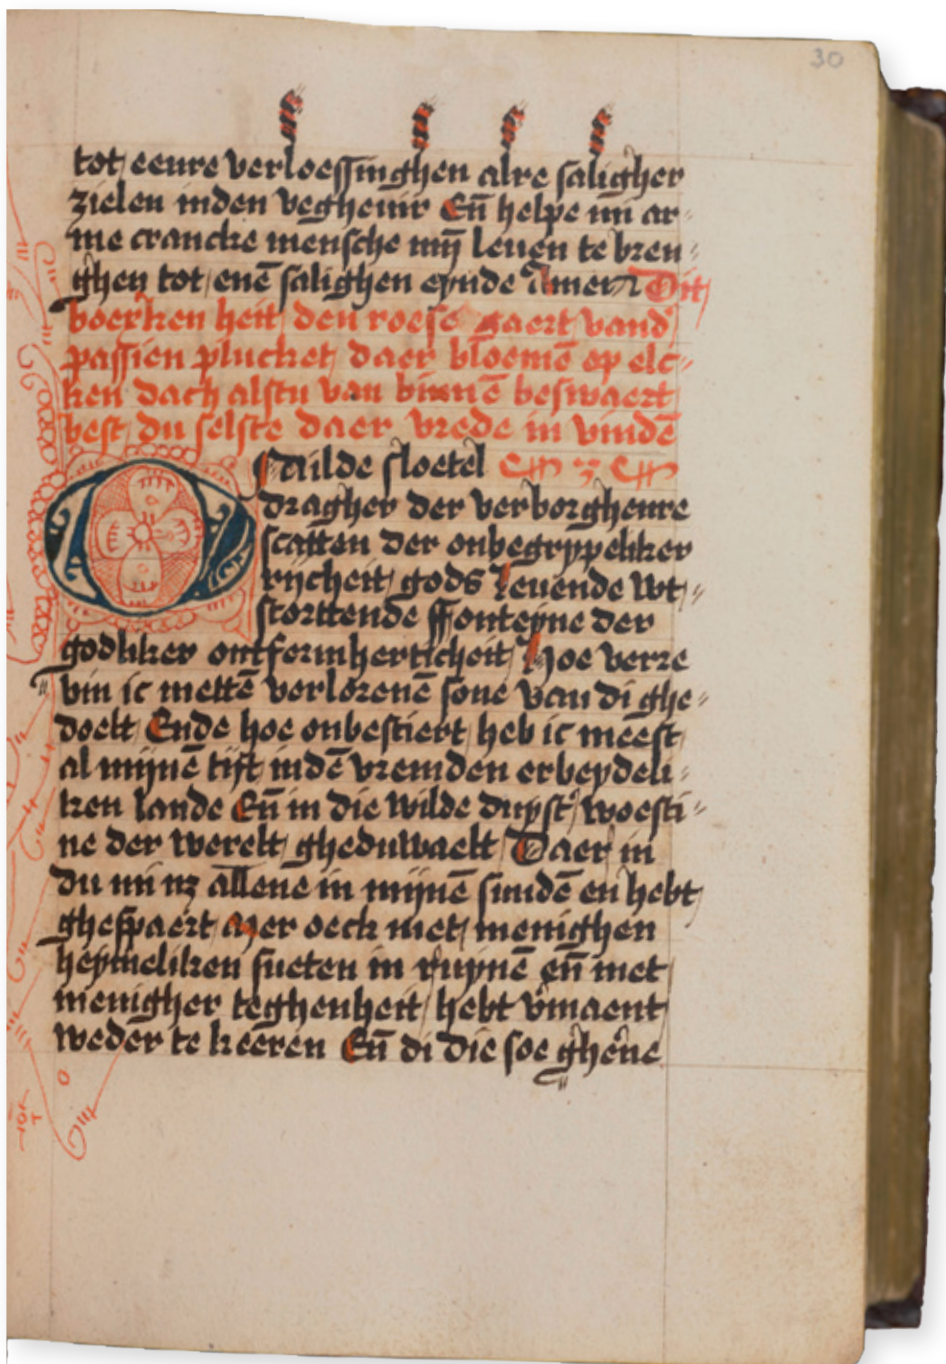 30
tot eenre verloessinghen alre saligher
zielen inden veghevir Eñ helpe mi ar-
me crancke mensche mÿ leven te bren-
ghen tot enē salighen eynde Amen Dit
boexken heit den roese gaert vand
passien plucket daer bloemē op elc-
ken dach alstu van binnē beswaert
best du selste daer vrede in vindē
O Milde sloetel
dragher der verborghenre
scatten der onbegrypeliker
rijcheit gods Levende wt-
stortende ffonteyne der
godliker ontfermherticheit Hoe verre
bin ic mettē verlorenē sone van di ghe-
doelt Ende hoe onbestiert heb ic meest
al mijnē tijt indē vremden erbeydeli-
ken lande Eñ in die wilde duyst woesti-
ne der werelt ghedwaelt Daer in
du mi nz allene in mijnē sundē en hebt
ghespaert Mer oeck met menighen
heymeliken sueten in ruynē eñ met
menigher teghenheit hebt vmaent
weder te keeren Eñ di die soe gherne